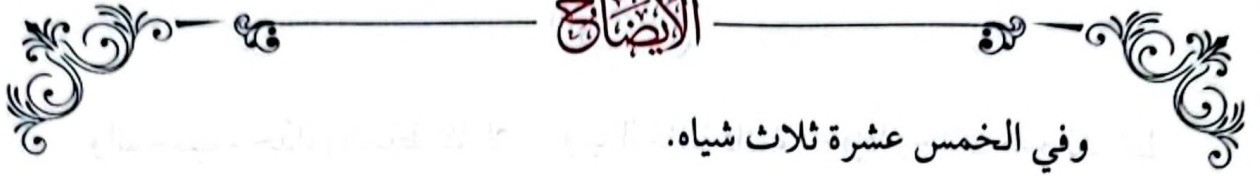 الإيضاح
وفي الخمس عشرة ثلاث شياه.